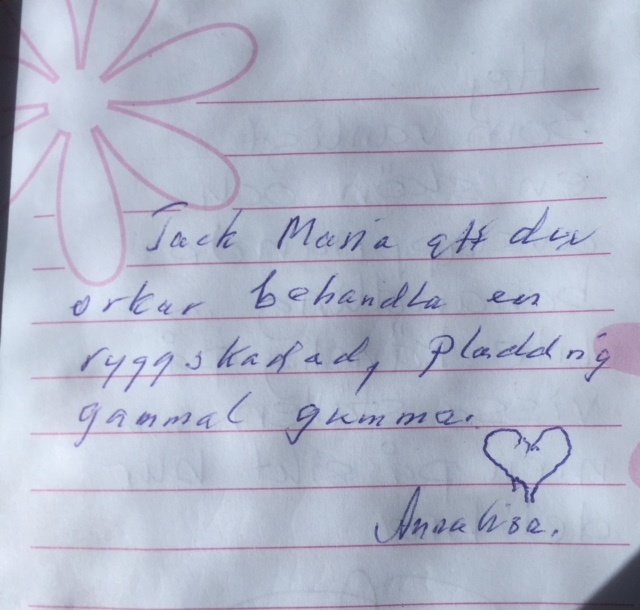 Tack Maria att du
orkar behandla en
ryggskadad, pladdrig
gammal gumma.
Annalisa.